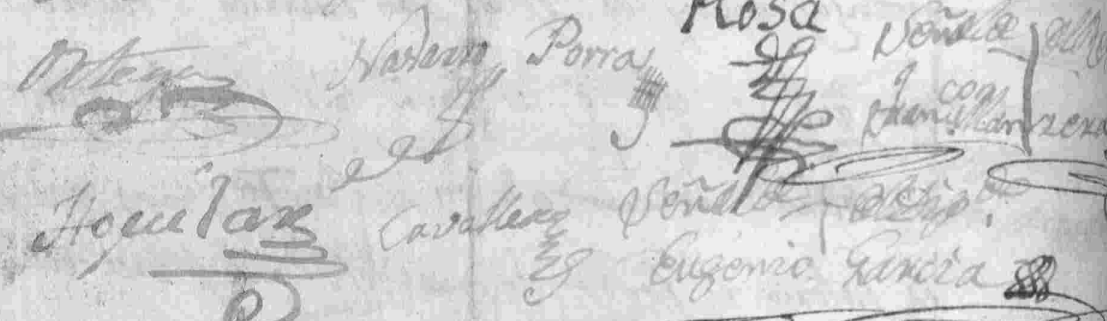 Ortega Navarro Porras Rosa Señal de
Juan Manzera
Aguilar Cavallero Señal de
Eugenio Garcia